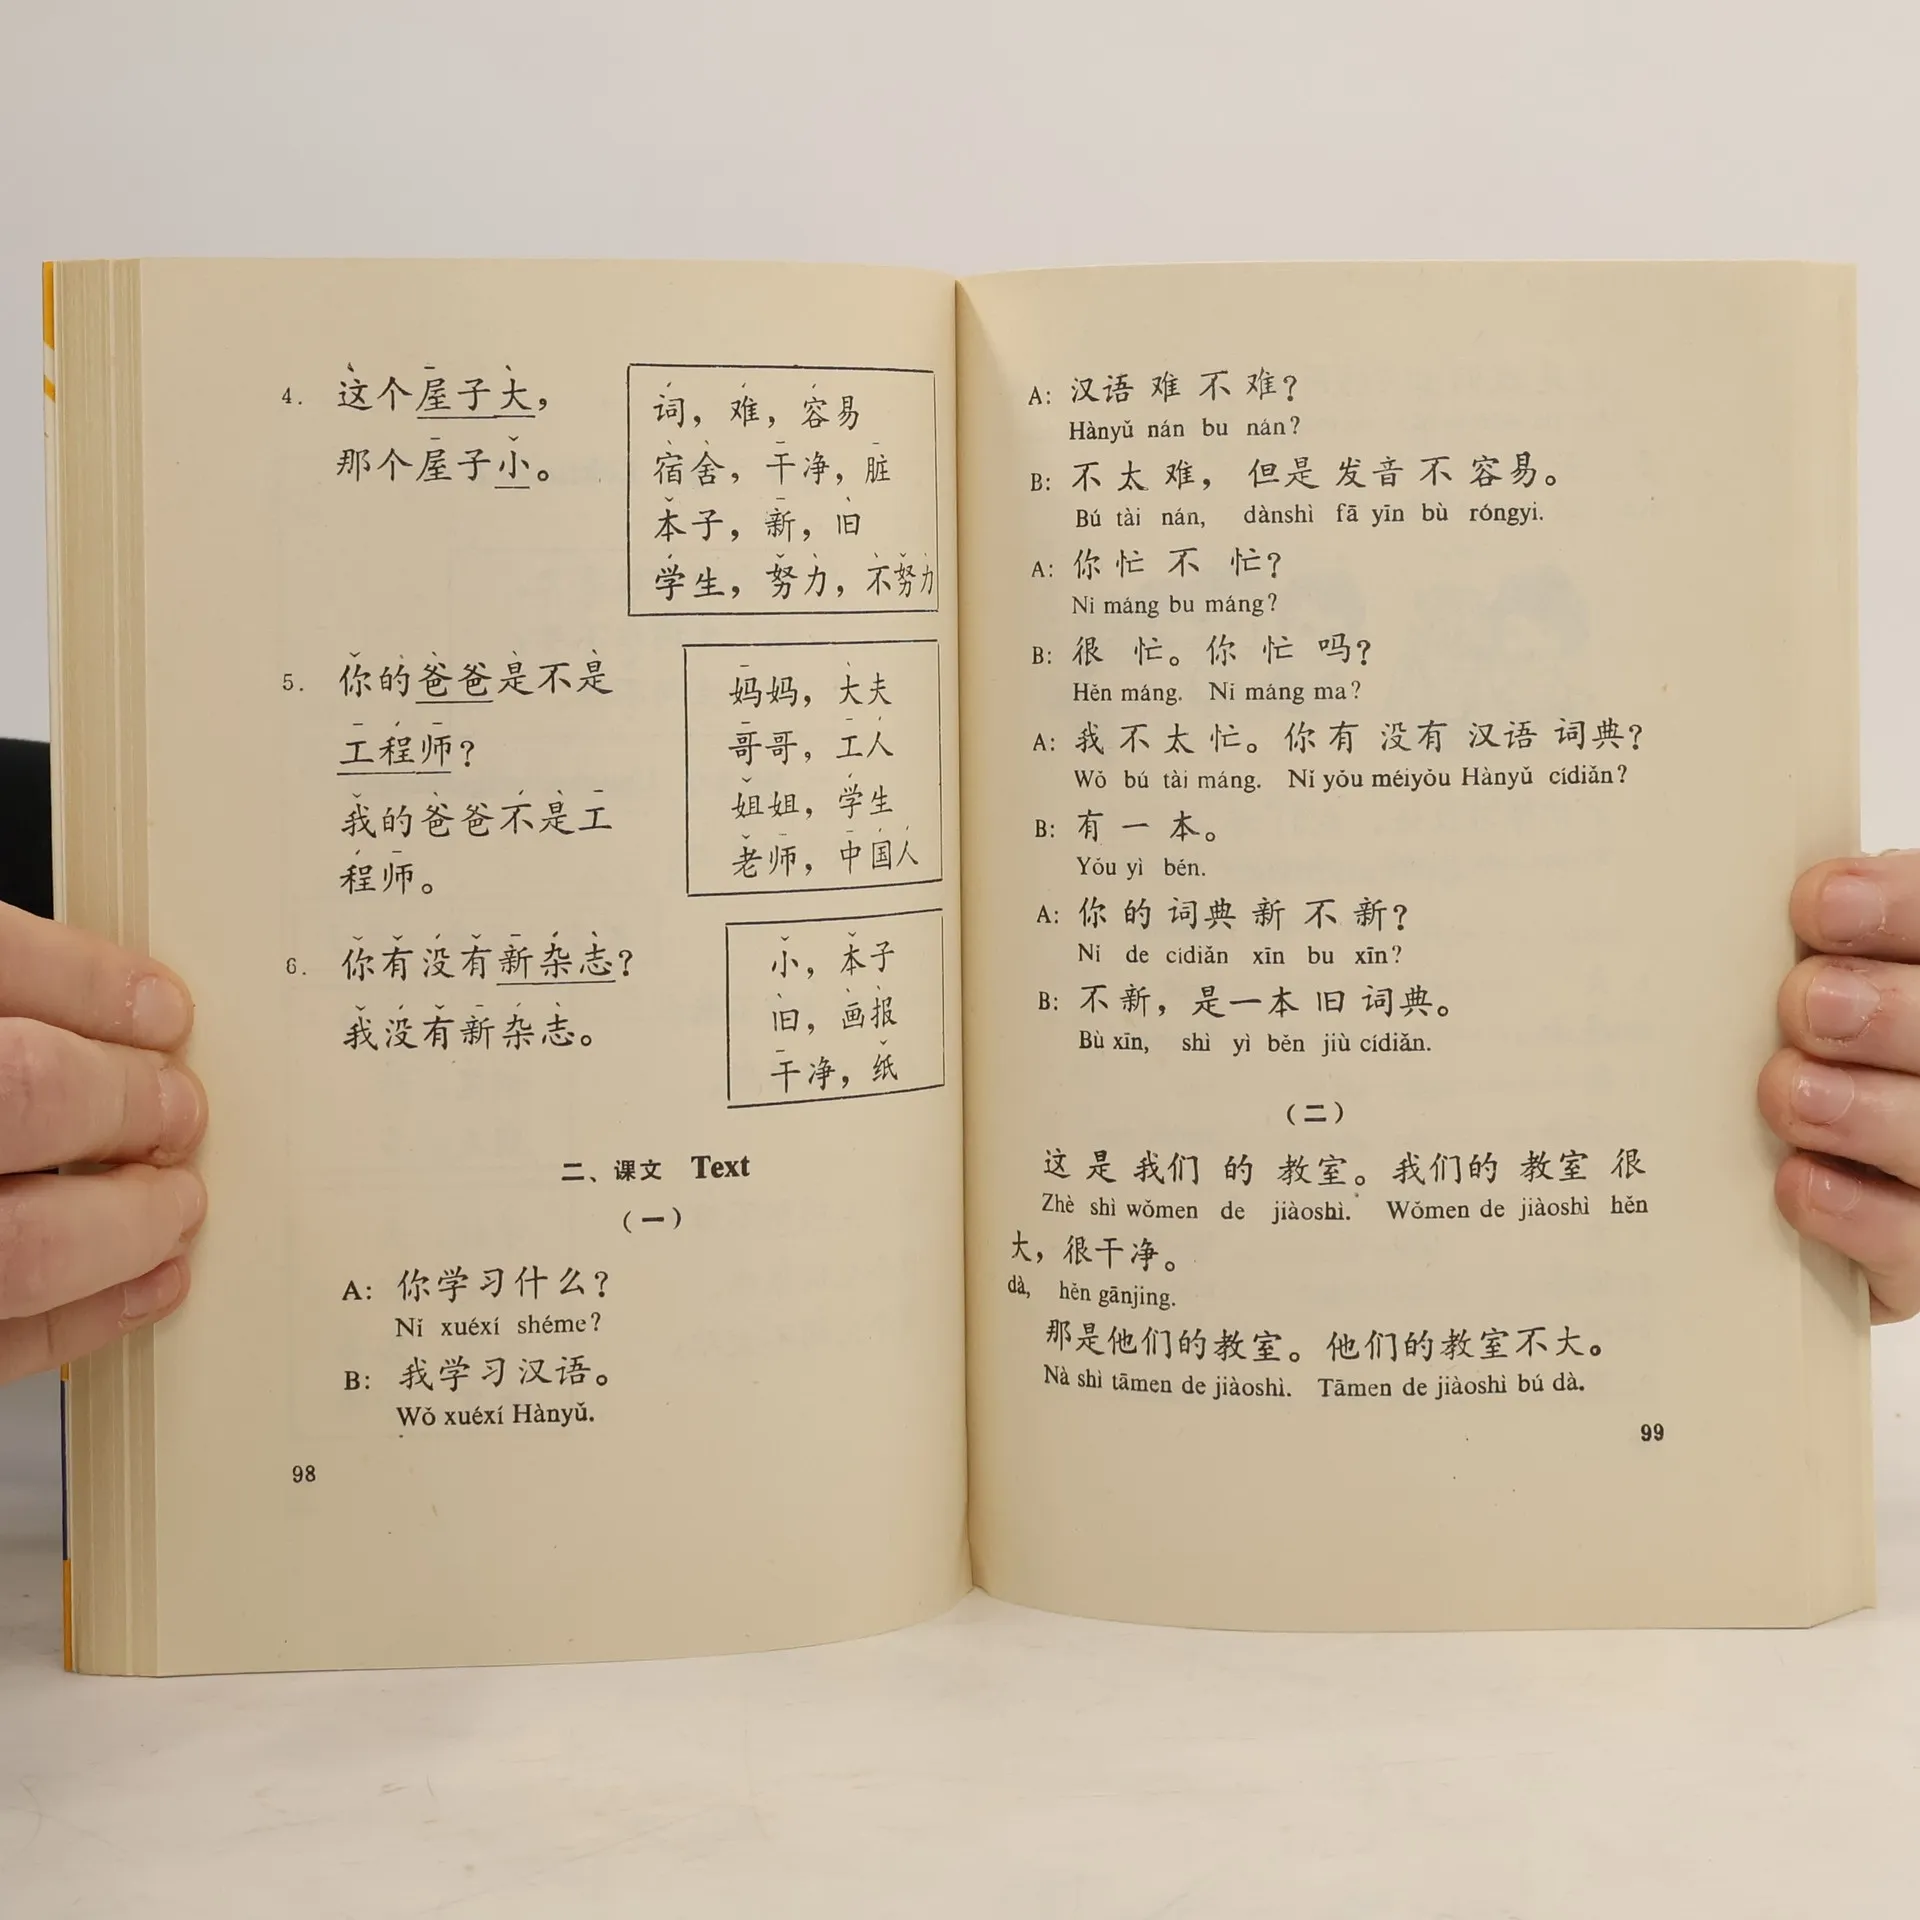 4. 这个屋子大，
那个屋子小。
词，难，容易
宿舍，干净，脏
本子，新，旧
学生，努力，不努力
5. 你的爸爸是不是
工程师？
我的爸爸不是工
程师。
妈妈，大夫
哥哥，工人
姐姐，学生
老师，中国人
6. 你有没有新杂志？
我没有新杂志。
小，本子
旧，画报
干净，纸
二、课文 Text
（一）
A: 你学习什么？
Nǐ xuéxí shéme?
B: 我学习汉语。
Wǒ xuéxí Hànyǔ.
98
A: 汉语 难 不 难？
Hànyǔ nán bu nán?
B: 不 太 难， 但是 发音 不 容易。
Bú tài nán, dànshì fā yīn bù róngyi.
A: 你 忙 不 忙？
Ni máng bu máng?
B: 很 忙。 你 忙 吗？
Hěn máng. Ni máng ma?
A: 我 不 太 忙。 你 有 没有 汉语 词典？
Wǒ bú tài máng. Nǐ yǒu méiyǒu Hànyǔ cídiǎn?
B: 有 一 本。
Yǒu yì bén.
A: 你 的 词典 新 不 新？
Ni de cidiǎn xīn bu xīn?
B: 不 新， 是 一 本 旧 词典。
Bù xīn, shì yì běn jiù cídiǎn.
（二）
这 是 我们 的 教室。 我们的 教室 很
Zhè shì wǒmen de jiàoshì. Wǒmen de jiàoshì hěn
大， 很干净。
dà, hěn gānjing.
那是他们的教室。 他们的教室不大。
Nà shì tāmen de jiàoshì. Tāmen de jiàoshì bú dà.
99